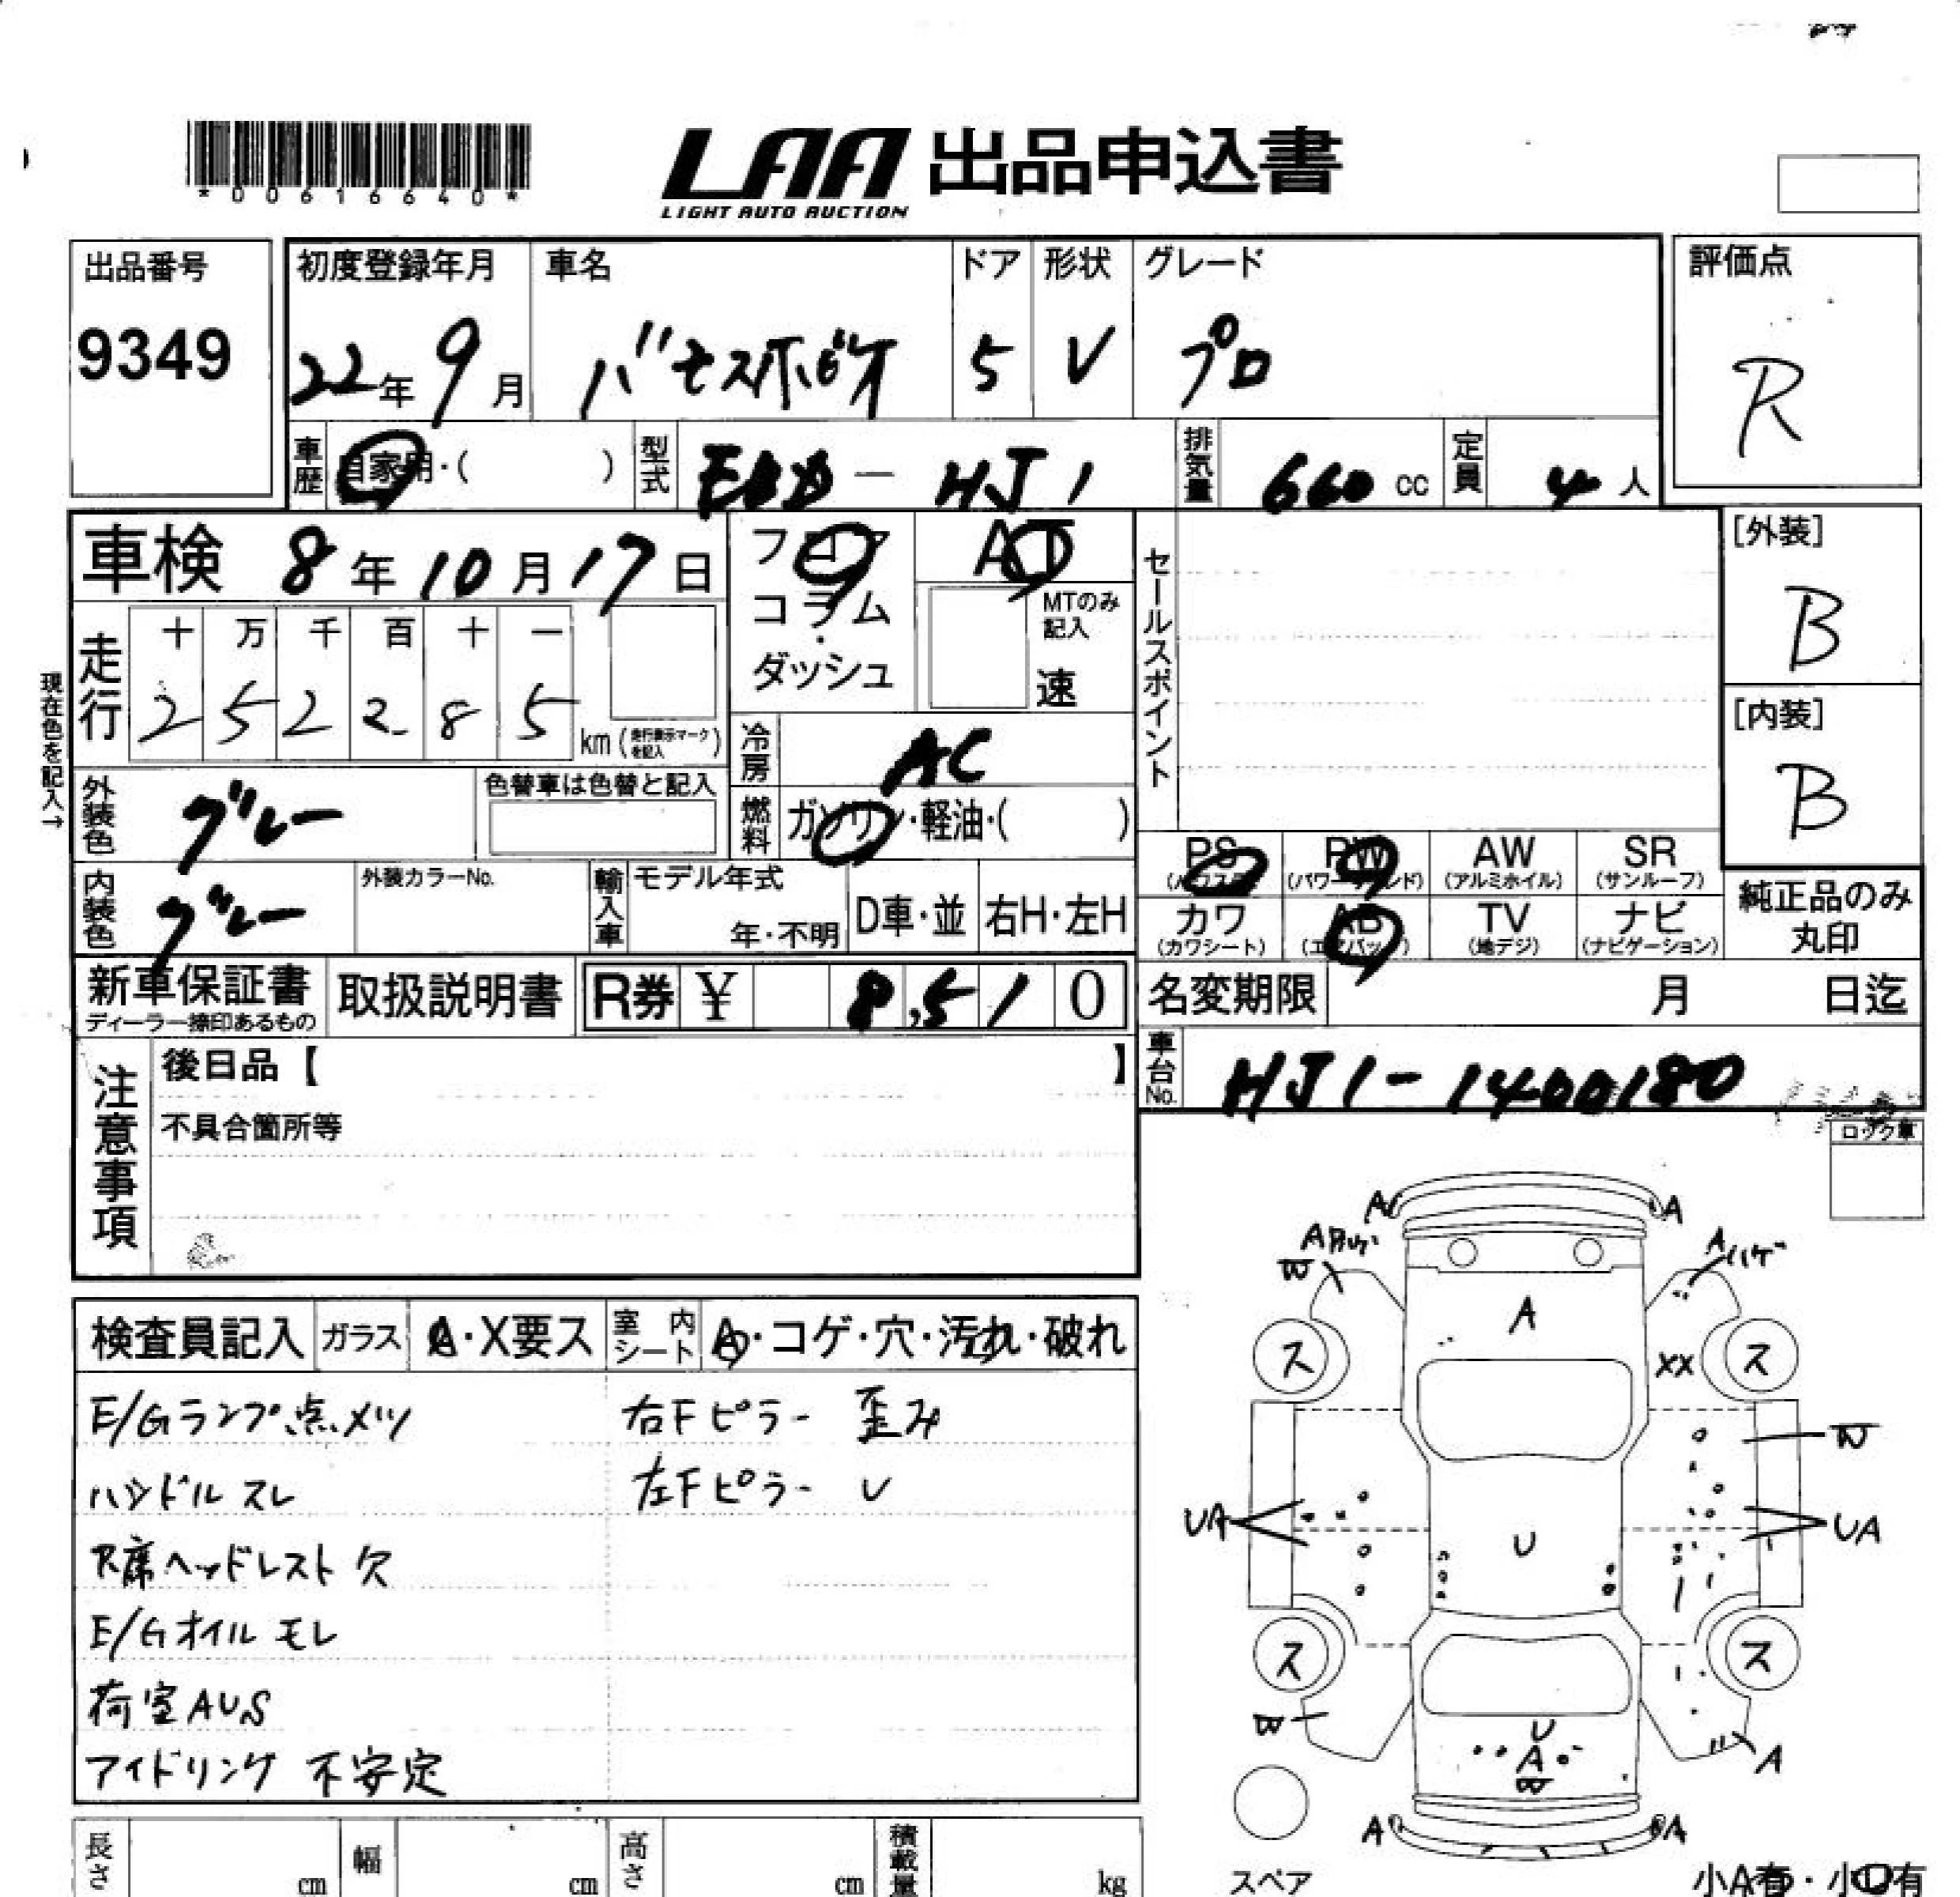 *00616640*
LAA 出品申込書
LIGHT AUTO AUCTION
出品番号
9349
初度登録年月
22年9月
車名
バモスホビオ
ドア
5
形状
V
グレード
プロ
評価点
R
車歴
自家用・( )
型式
EBD-HJ1
排気量
660 cc
定員
4人
車検 8年10月17日
フロア
コラム
・
ダッシュ
AT
MTのみ
記入
速
セールスポイント
[外装]
B
[内装]
B
現在色を記入→
走行
十 万 千 百 十 一
2 5 2 2 8 5
km (走行表示マークを記入)
冷房
AC
外装色
グレー
色替車は色替と記入
燃料
ガソリン・軽油・( )
内装色
グレー
外装カラーNo.
輸入車
モデル年式
年・不明
D車・並
右H・左H
PS
(パワステ)
PW
(パワーウィンド)
AW
(アルミホイル)
SR
(サンルーフ)
カワ
(カワシート)
AB
(エアバッグ)
TV
(地デジ)
ナビ
(ナビゲーション)
純正品のみ
丸印
新車保証書
ディーラー捺印あるもの
取扱説明書
R券 ¥ 8,510
名変期限 月 日迄
車台No.
HJ1-1400180
注意事項
後日品【 】
不具合箇所等
ロック車
検査員記入
ガラス
A・X要ス
室内シート
A・コゲ・穴・汚れ・破れ
E/Gランプ点メツ
右Fピラー 歪み
ハンドル スレ
左Fピラー U
R席ヘッドレスト 欠
E/Gオイル モレ
荷室AUS
アイドリング 不安定
A
A
A
W
A ハゲ
A
ス
XX
ス
W
UA
U
UA
ス
ス
W
U
A
W
A
A
A
スペア
小A有・小U有
長さ
cm
幅
cm
高さ
cm
積載量
kg